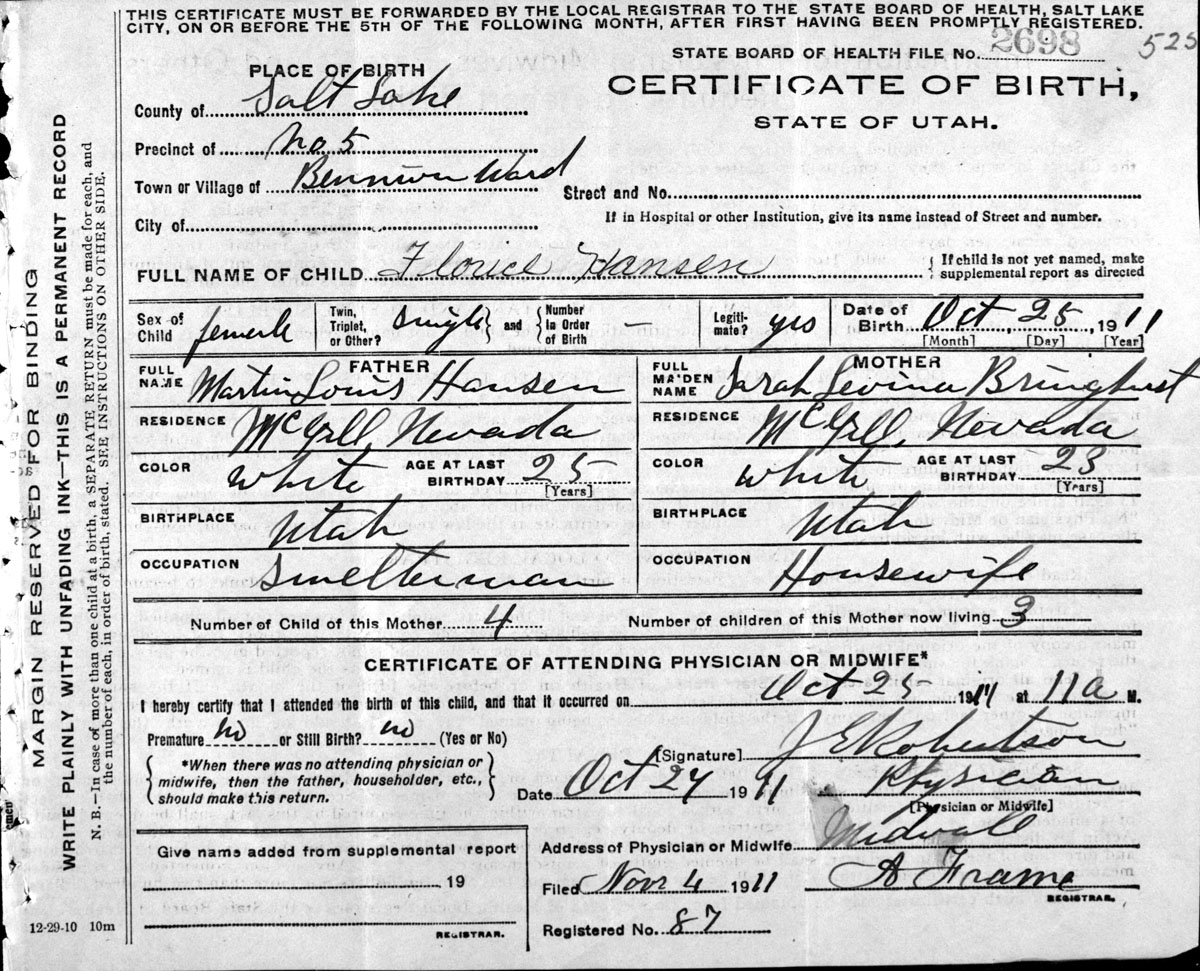 THIS CERTIFICATE MUST BE FORWARDED BY THE LOCAL REGISTRAR TO THE STATE BOARD OF HEALTH, SALT LAKE
CITY, ON OR BEFORE THE 5TH OF THE FOLLOWING MONTH, AFTER FIRST HAVING BEEN PROMPTLY REGISTERED.
STATE BOARD OF HEALTH FILE No. 2698 525
PLACE OF BIRTH
CERTIFICATE OF BIRTH,
STATE OF UTAH.
County of Salt Lake
Precinct of No 5
Town or Village of Bennion Ward
Street and No.
City of
If in Hospital or other Institution, give its name instead of Street and number.
FULL NAME OF CHILD Florice Hansen { If child is not yet named, make
supplemental report as directed
Sex of Child female
Twin, Triplet, or Other? Single } and { Number in Order of Birth
Legitimate? yes
Date of Birth Oct. 25, 1911
[Month] [Day] [Year]
FATHER
FULL NAME Martin Louis Hansen
RESIDENCE McGill, Nevada
COLOR White AGE AT LAST BIRTHDAY 25
[Years]
BIRTHPLACE Utah
OCCUPATION Smelterman
MOTHER
FULL MAIDEN NAME Sarah Levina Bringhurst
RESIDENCE McGill, Nevada
COLOR White AGE AT LAST BIRTHDAY 23
[Years]
BIRTHPLACE Utah
OCCUPATION Housewife
Number of Child of this Mother 4 Number of children of this Mother now living 3
CERTIFICATE OF ATTENDING PHYSICIAN OR MIDWIFE*
I hereby certify that I attended the birth of this child, and that it occurred on Oct 25 1911 at 11 a M.
Premature no or Still Birth? no (Yes or No)
*When there was no attending physician or
midwife, then the father, householder, etc.,
should make this return.
[Signature] J E Robertson
Date Oct 27 1911 Physician
[Physician or Midwife]
Address of Physician or Midwife Midvale
Give name added from supplemental report
19
REGISTRAR.
Filed Nov 4 1911 A Frame
REGISTRAR.
Registered No. 87
12-29-10 10m
MARGIN RESERVED FOR BINDING
WRITE PLAINLY WITH UNFADING INK—THIS IS A PERMANENT RECORD
N. B.—In case of more than one child at a birth, a SEPARATE RETURN must be made for each, and
the number of each, in order of birth, stated. SEE INSTRUCTIONS ON OTHER SIDE.